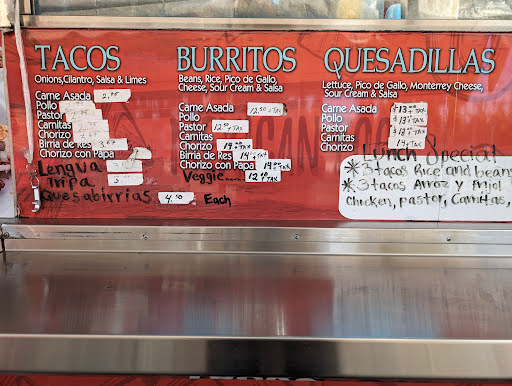 TACOS
Onions,Cilantro, Salsa & Limes
Carne Asada
Pollo
Pastor
Carnitas
Chorizo
Birria de Res
Chorizo con Papa
Lengua
Tripa
Quesabirrias Each
BURRITOS
Beans, Rice, Pico de Gallo,
Cheese, Sour Cream & Salsa
Carne Asada 12.50 +TAX
Pollo
Pastor 12.50 +TAX
Carnitas
Chorizo 14.00 +TAX
Birria de Res 14 +TAX
Chorizo con Papa 14.00 +TAX
Veggie 12.00 +TAX
QUESADILLAS
Lettuce, Pico de Gallo, Monterrey Cheese,
Sour Cream & Salsa
Carne Asada $13 +TAX
Pollo $13 +TAX
Pastor $13 +TAX
Carnitas
Chorizo 14 +TAX
Lunch Special
* 3 tacos Rice and beans
* 3 tacos Arroz y Frijol
Chicken, pastor, Carnitas,